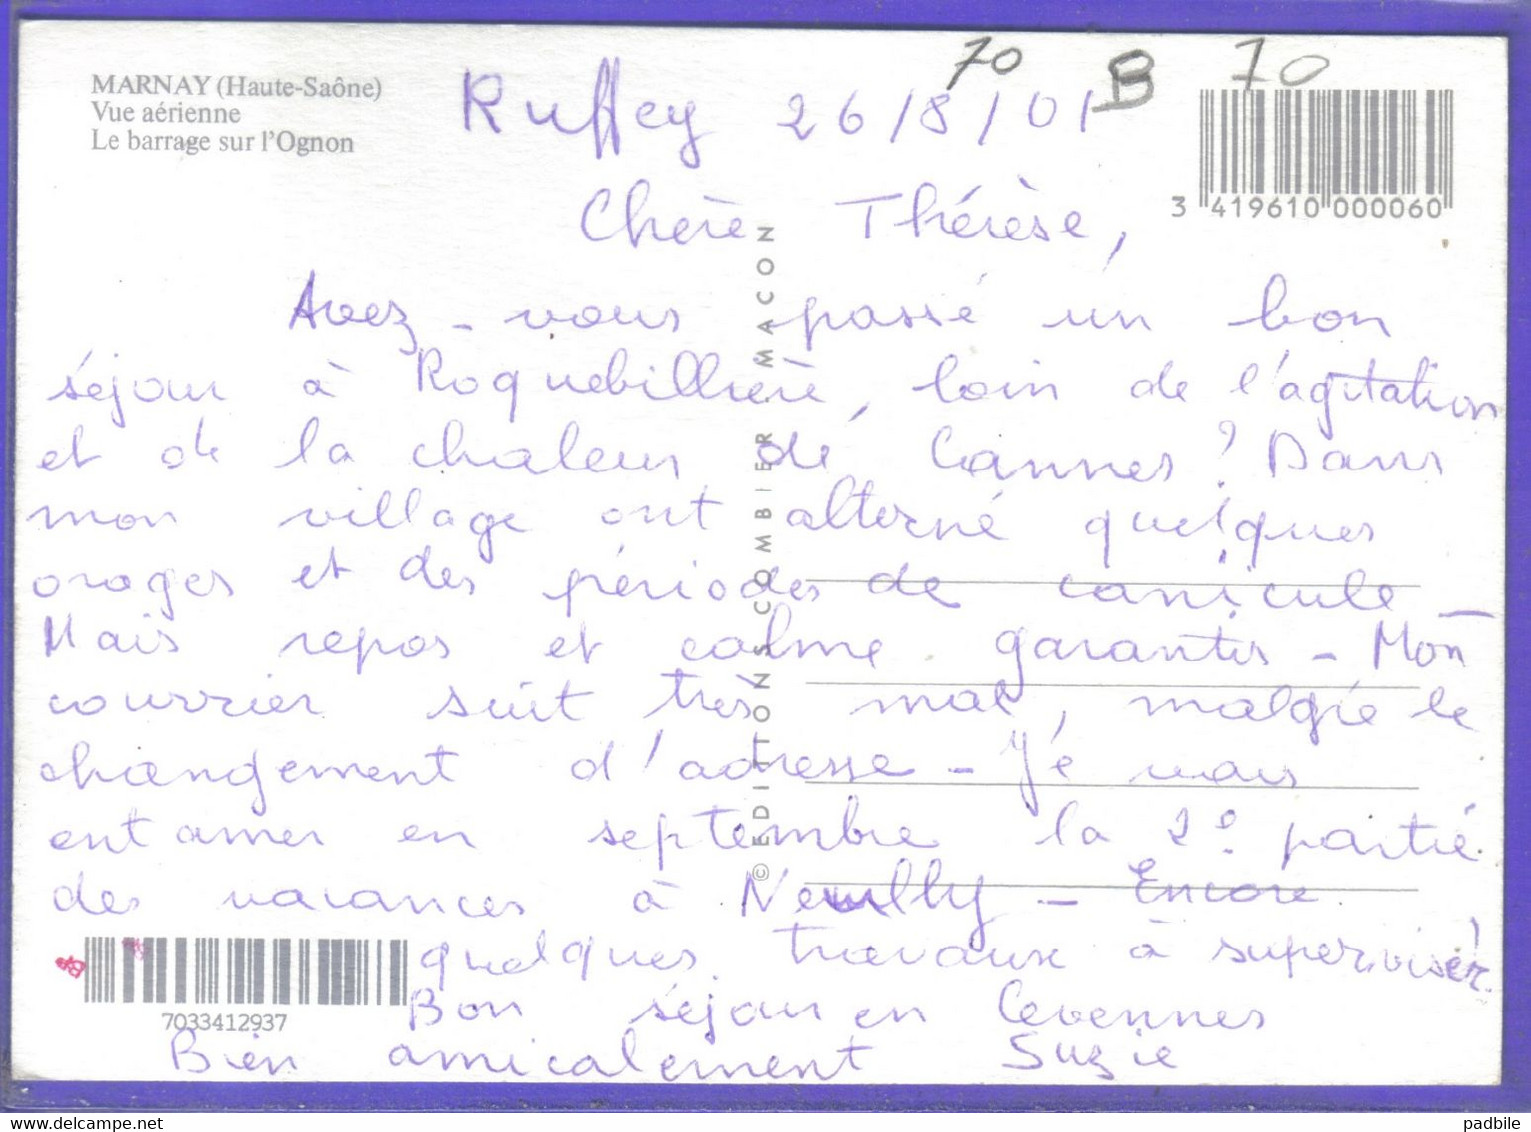 MARNAY (Haute-Saône)
Vue aérienne
Le barrage sur l'Ognon
70 B 70
Ruffey 26/8/01
3 419610 000060
Chère Thérèse,
Avez-vous passé un bon
séjour à Roquebillière, loin de l'agitation
et de la chaleur de Cannes? Dans
mon village ont alterné quelques
orages et des périodes de canicule –
Mais repos et calme garantis – Mon
courrier suit très mal, malgré le
changement d'adresse – Je vais
entamer en septembre la 2e partie
des vacances à Neuilly – Encore
quelques travaux à superviser!
Bon séjour en Cevennes
Bien amicalement Suzie
7033412937
© EDITIONS COMBIER MACON
delcampe.net
padbile